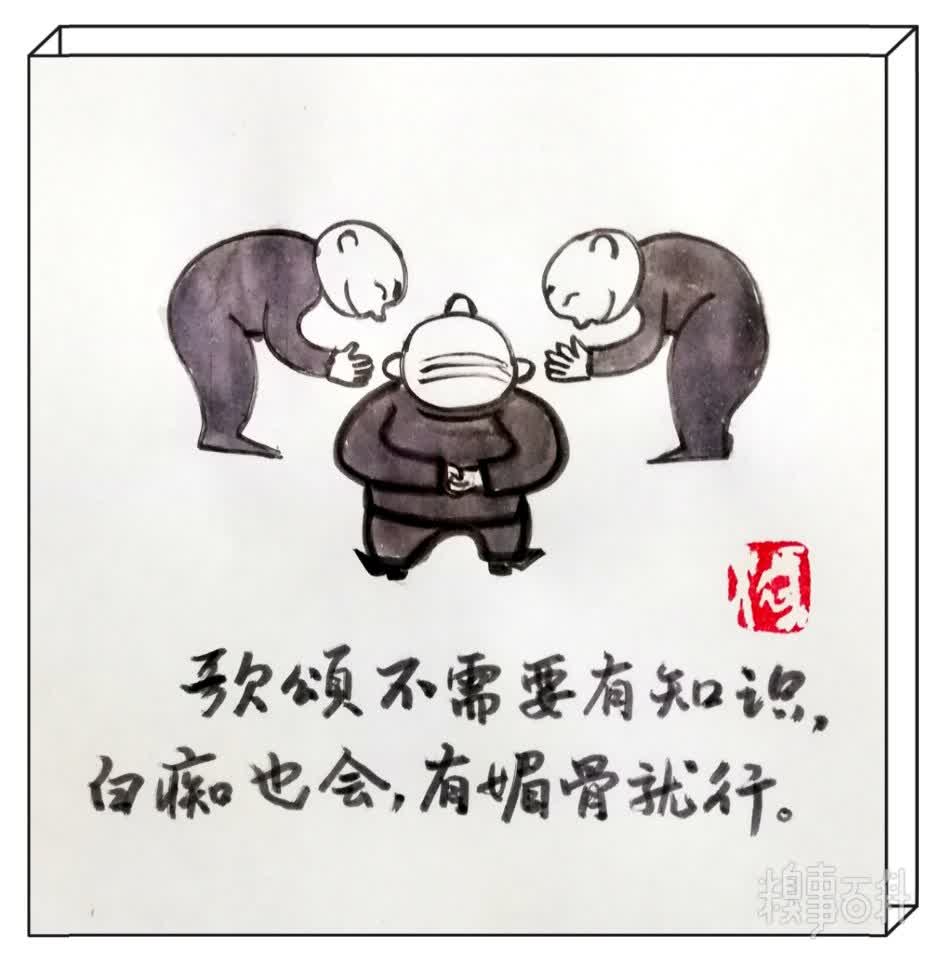 歌頌不需要有知识，
白痴也会，有媚骨就行。
糗事百科